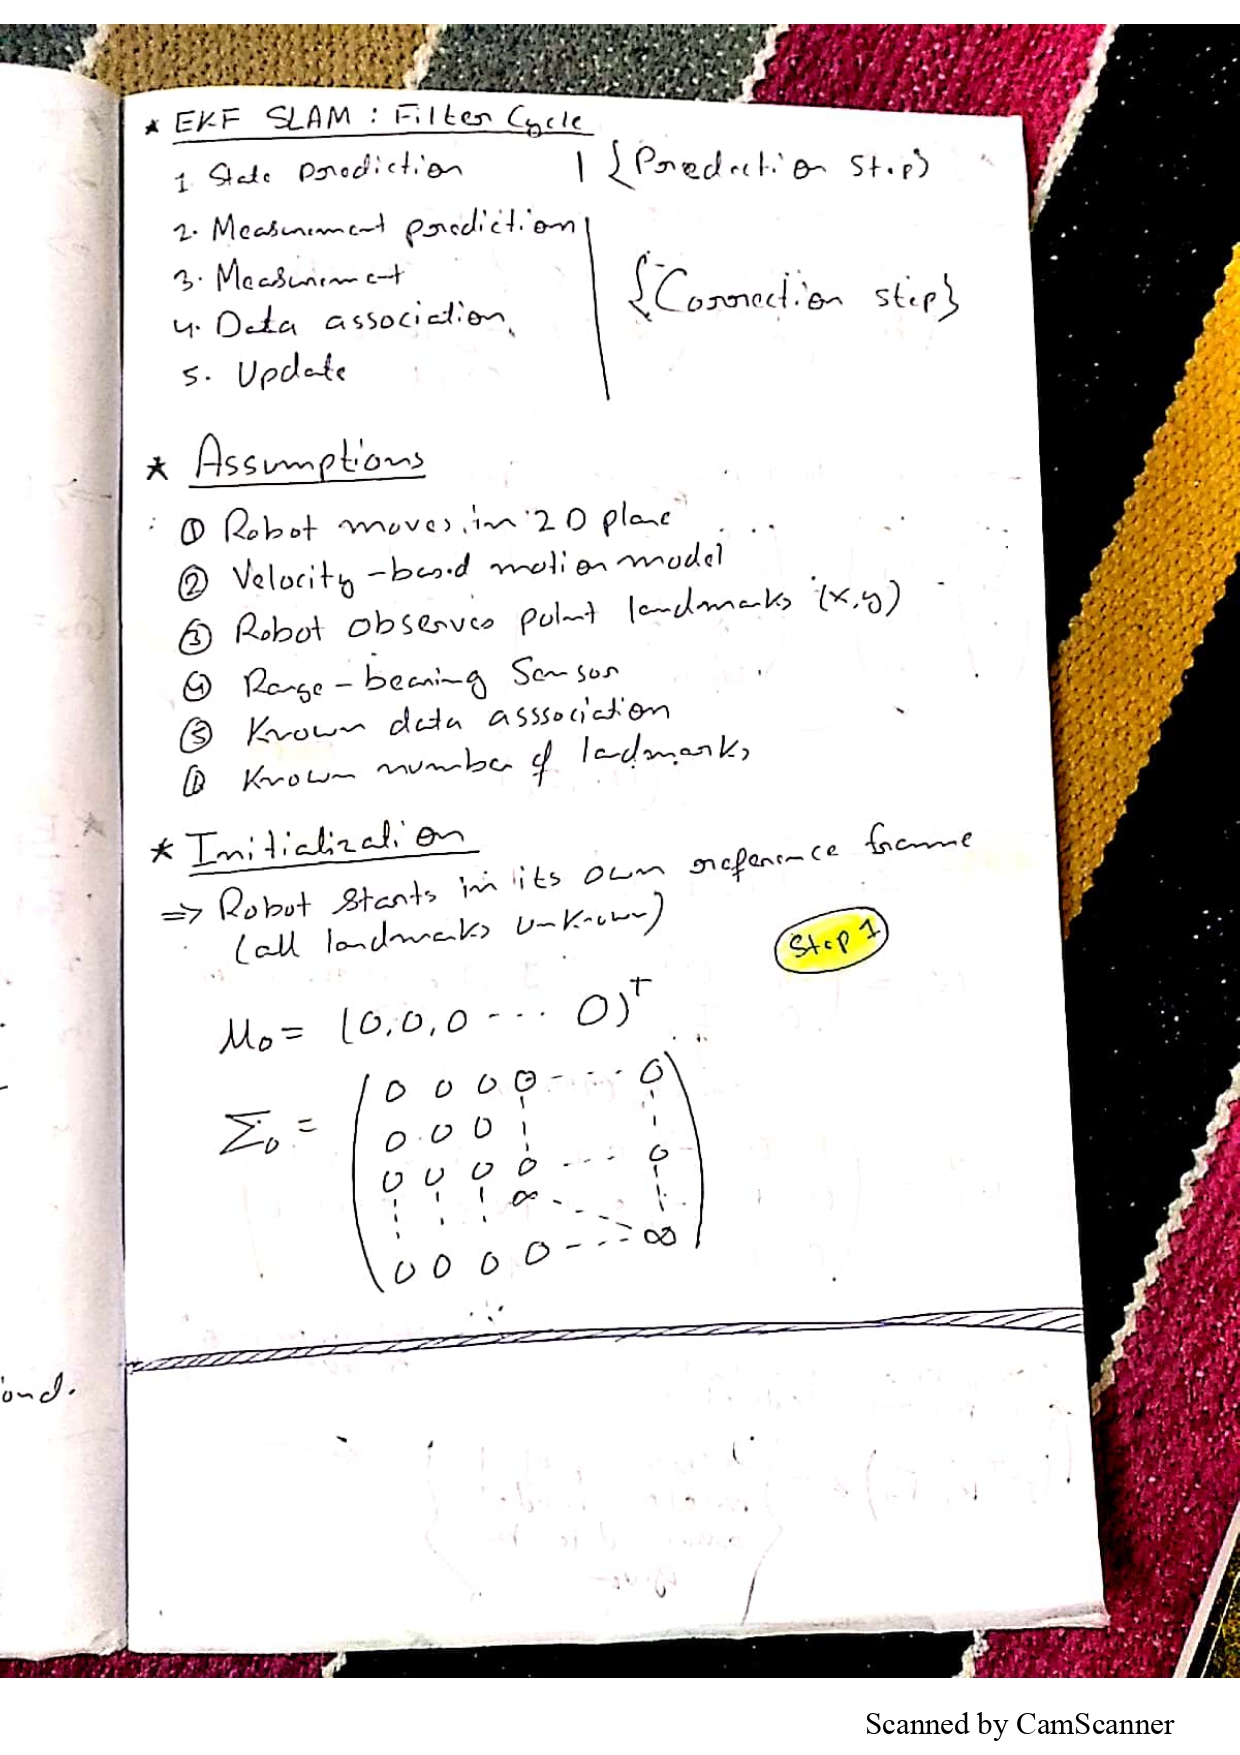 * EKF SLAM : Filter Cycle
1. State prediction | {Prediction Step}
2. Measurement prediction
3. Measurement
4. Data association
5. Update
{Correction step}
* Assumptions
① Robot moves in 2D plane
② Velocity-based motion model
③ Robot observes point landmarks (x,y)
④ Range-bearing Sensor
⑤ Known data asssociation
⑥ Known number of landmarks
* Initialization
⇒ Robot starts in its own reference frame
(all landmarks unknown)
Step 1
μ₀ = (0,0,0 --- 0)ᵀ
Σ₀ =
0 0 0 0 --- 0
0 0 0
0 0 0 0 --- 0
∞
0 0 0 0 --- ∞
ond.
Scanned by CamScanner